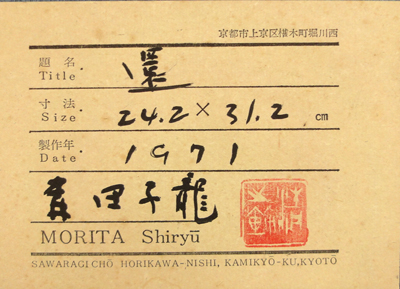 京都市上京区椹木町堀川西
題名 還
Title
寸法 24.2 × 31.2 cm
Size
製作年 1971
Date
森田子龍
MORITA Shiryū
SAWARAGICHŌ HORIKAWA-NISHI, KAMIKYŌ-KU, KYOTŌ